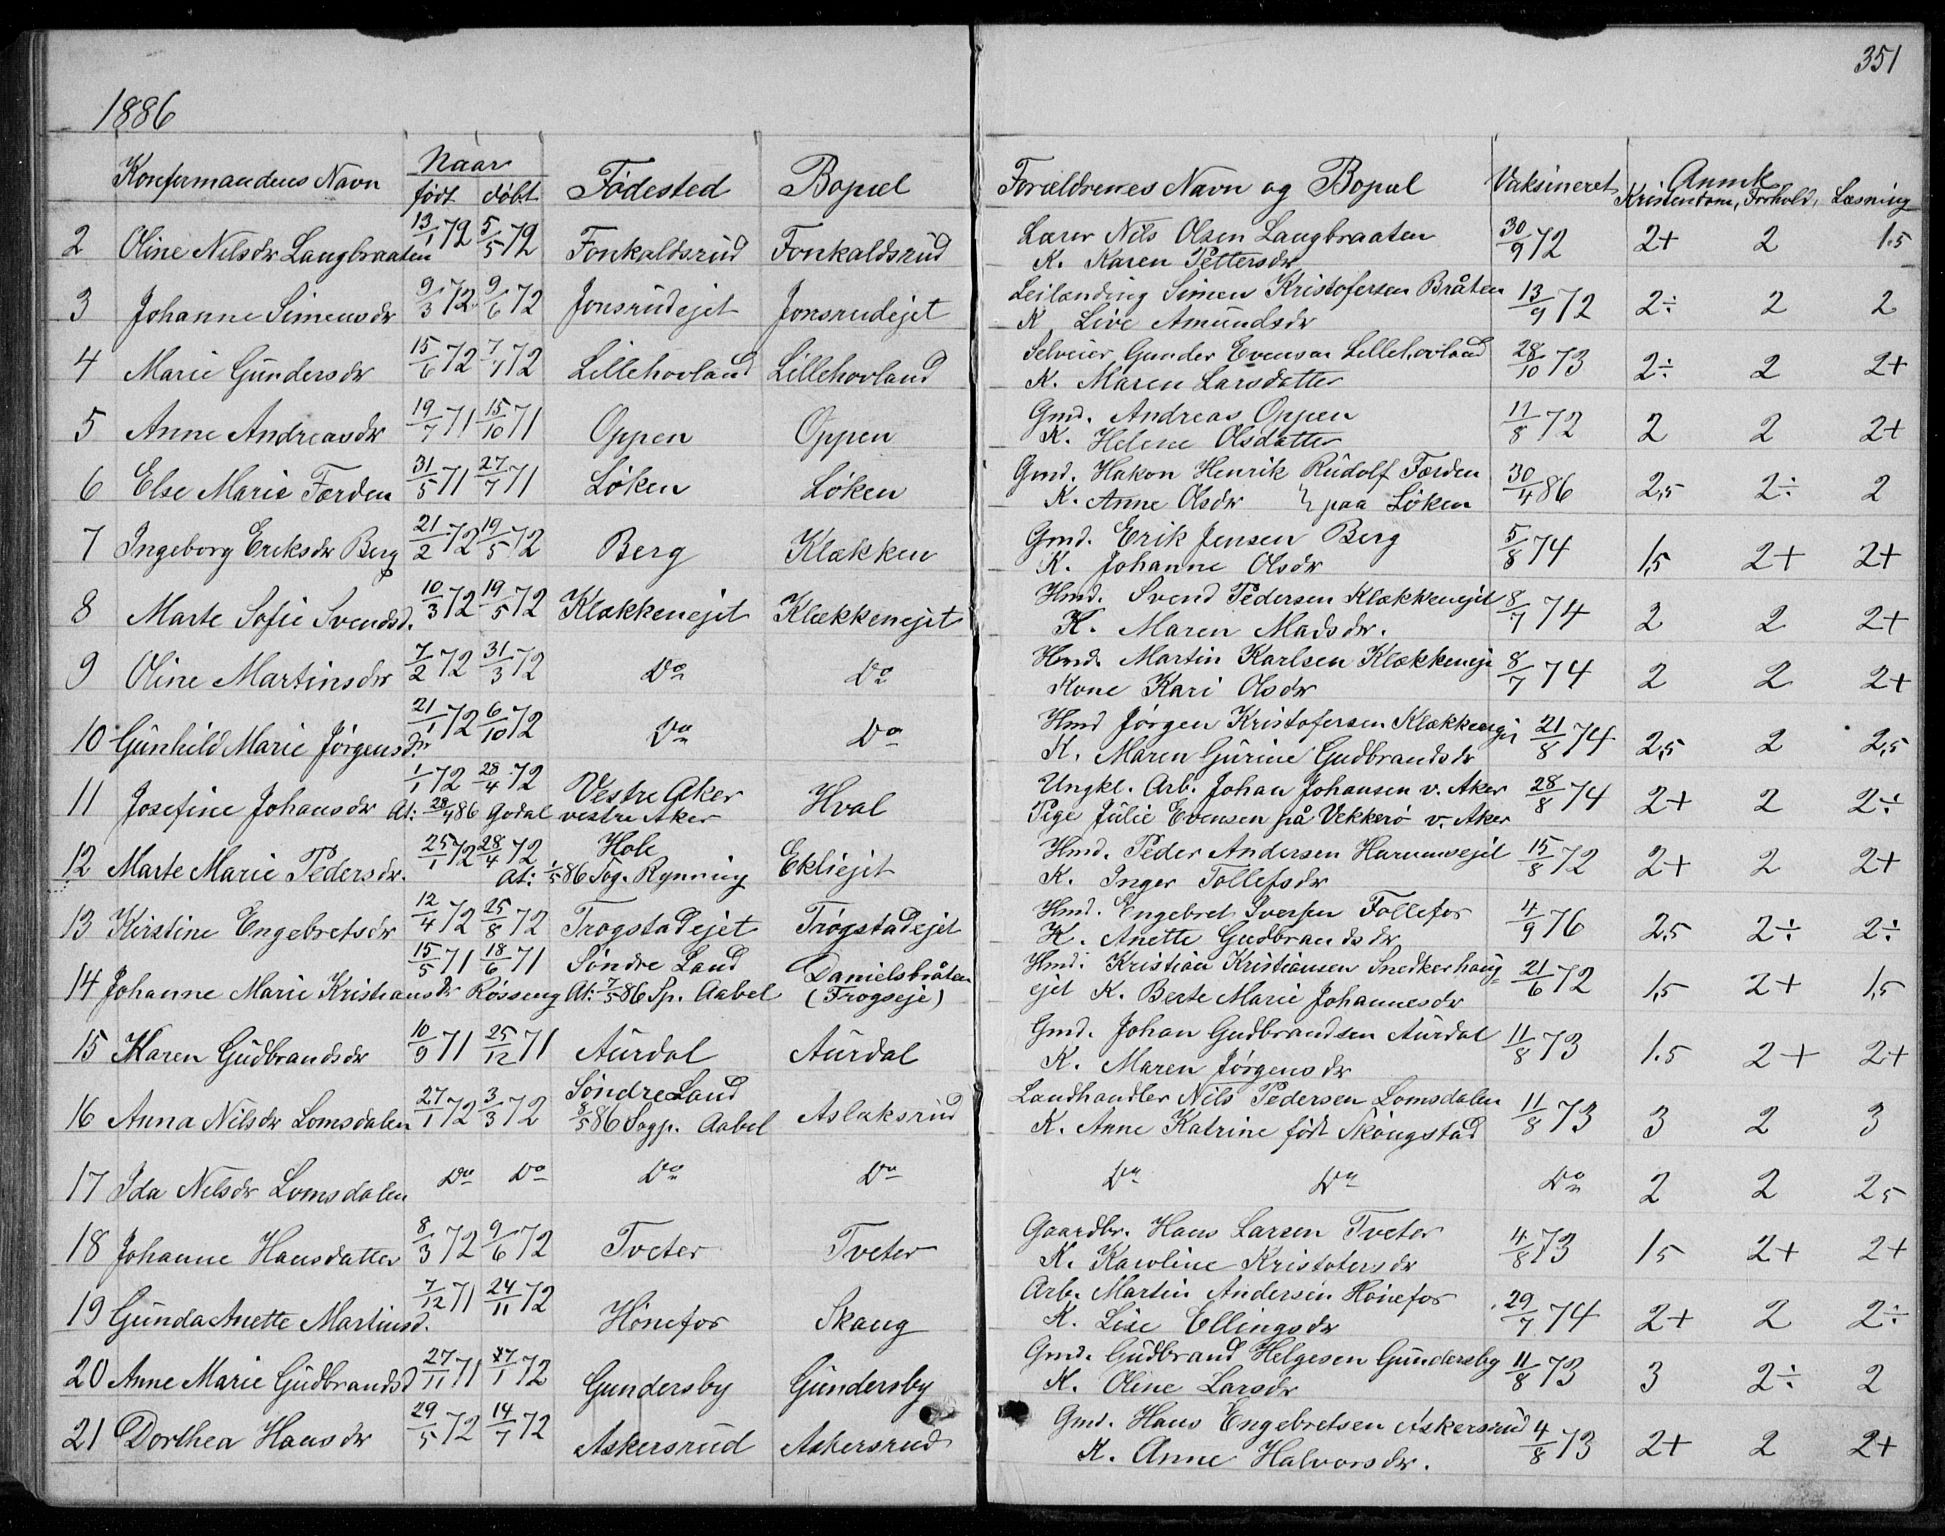 351
1886
Konfermandens Navn | Naar født døbt | Fødested | Bopæl | Forældrenes Navn og Bopæl | Vaksineret | Anmk Kristendom, Forhold, Læsning
2 Oline Nilsdr Langbraaten 13/1 72 5/5 72 Fonkaldsrud Fonkaldsrud Lærer Nils Olsen Langbraaten 30/9 72 2+ 2 1.5
K. Karen Pettersdr
3 Johanne Simensdr 9/3 72 9/6 72 Jonsrudejet Jonsrudejet Leilænding Simen Kristofersen Bråten 13/9 72 2÷ 2 2
K. Live Amundsdr
4 Marie Gundersdr 15/6 72 7/7 72 Lillehovland Lillehovland Selveier Gunder Evensen Lillehovland 28/10 73 2÷ 2 2+
K. Maren Larsdatter
5 Anne Andreasdr 19/7 71 15/10 71 Oppen Oppen Gmd. Andreas Oppen 11/8 72 2 2 2+
K. Helene Olsdatter
6 Else Marie Færden 31/5 71 27/7 71 Løken Løken Gmd. Hakon Henrik Rudolf Færden 30/4 86 2,5 2÷ 2
K. Anne Olsdr } paa Løken
7 Ingeborg Eriksdr Berg 21/2 72 19/5 72 Berg Klækken Gmd. Erik Jensen Berg 5/8 74 1,5 2+ 2+
K. Johanne Olsdr
8 Marte Sofie Svendsd. 10/3 72 19/5 72 Klækkenejet Klækkenejet Hmd. Svend Pedersen Klækkenejet 8/7 74 2 2 2+
K. Maren Madsdr.
9 Oline Martinsdr 7/2 72 31/3 72 Do Do Hmd. Martin Karlsen Klækkeneje 8/7 74 2 2 2+
Kone Kari Olsdr
10 Gunhild Marie Jørgensdr 21/1 72 6/10 72 Do Do Hmd Jørgen Kristofersen Klækkenej 21/8 74 2,5 2 2,5
K. Maren Gurine Gudbrandsdr
11 Josefine Johansdr 1/1 72 28/4 72 Vestre Aker Hval Ungkl. Arb. Johan Johansen v. Aker 28/8 74 2+ 2 2÷
At: 28/4 86 Godal vestre Aker Pige Julie Evensen på Vekkerø v. Aker
12 Marte Marie Pedersdr. 25/1 72 28/4 72 Hole Ekliejet Hmd. Peder Andersen Harumsejet 15/8 72 2+ 2 2+
At: 1/5 86 Sog. Rynning K. Inger Tollefsdr
13 Kirstine Engebretsdr 12/4 72 25/8 72 Trøgstadejet Trøgstadejet Hmd. Engebret Iversen Follefos 4/9 76 2.5 2÷ 2÷
K. Anette Gudbrandsdr
14 Johanne Marie Kristiansdr Røsseng 15/5 71 18/6 71 Søndre Land Danielsbråten Hmd. Kristian Kristiansen Snedkerhaug= 21/6 72 1,5 2+ 1,5
At: 7/5 86 Sp. Aabel (Frogseje) ejet K. Berte Marie Johannesdr
15 Karen Gudbrandsdr 10/9 71 25/12 71 Aurdal Aurdal Gmd. Johan Gudbrandsen Aurdal 11/8 73 1.5 2+ 2+
K. Maren Jørgensdr
16 Anna Nilsdr Lomsdalen 27/1 72 3/3 72 Søndre Land Aslaksrud Landhandler Nils Pedersen Lomsdalen 11/8 73 3 2 3
8/5 86 Sogp. Aabel K. Anne Katrine født Skøugstad
17 Ida Nilsdr Lomsdalen Do Do Do Do Do Do Do 2 2 2 5
18 Johanne Hansdatter 8/3 72 9/6 72 Tveter Tveter Gaardbr. Hans Larsen Tveter 4/8 73 1 5 2+ 2+
K. Karoline Kristofersdr
19 Gunda Anette Martinsd. 7/12 71 24/11 72 Hønefos Skaug Arb. Martin Andersen Hønefos 29/7 74 2+ 2 2÷
K. Lise Ellingsdr
20 Anne Marie Gudbrandsd 27/11 71 27/1 72 Gundersby Gundersby Gmd. Gudbrand Helgesen Gundersby 11/8 73 3 2÷ 2
K. Oline Larsdr
21 Dorthea Hansdr 29/5 72 14/7 72 Askersrud Askersrud Gmd. Hans Engebretsen Askersrud 4/8 73 2+ 2 2+
K. Anne Halvorsdr.